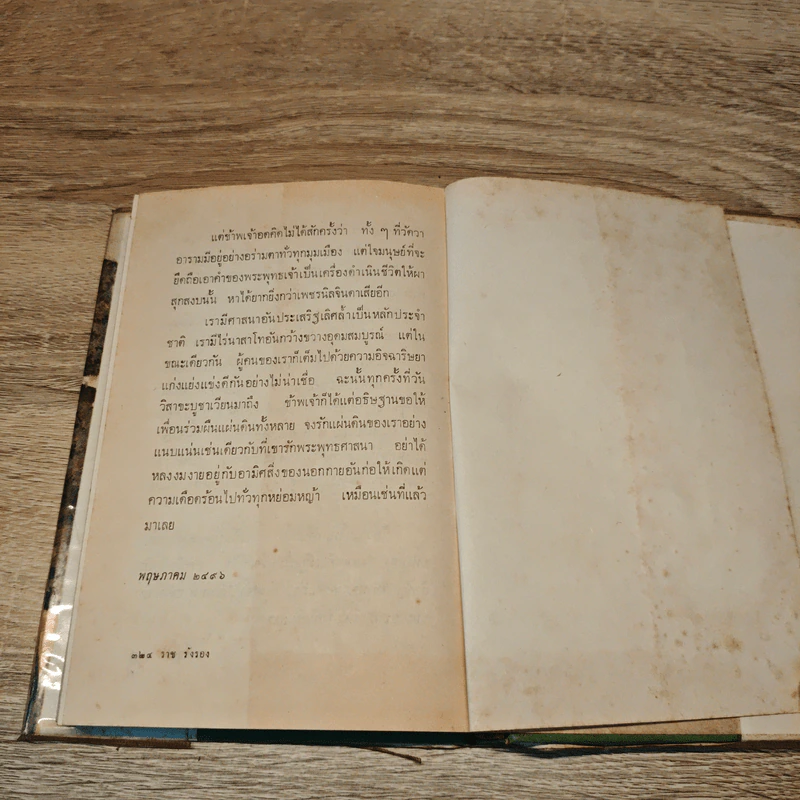 แต่ข้าพเจ้าอดคิดไม่ได้สักครั้งว่า ทั้ง ๆ ที่วัดวา
อารามมีอยู่อย่างอร่ามตาทั่วทุกมุมเมือง แต่ใจมนุษย์ที่จะ
ยึดถือเอาคำของพระพุทธเจ้าเป็นเครื่องดำเนินชีวิตให้ผา
สุกสงบนั้น หาได้ยากยิ่งกว่าเพชรนิลจินดาเสียอีก
เรามีศาสนาอันประเสริฐเลิศล้ำเป็นหลักประจำ
ชาติ เรามีไร่นาสาโทอันกว้างขวางอุดมสมบูรณ์ แต่ใน
ขณะเดียวกัน ผู้คนของเราก็เต็มไปด้วยความอิจฉาริษยา
แก่งแย่งแข่งดีกันอย่างไม่น่าเชื่อ ฉะนั้นทุกครั้งที่วัน
วิสาขะบูชาเวียนมาถึง ข้าพเจ้าก็ได้แต่อธิษฐานขอให้
เพื่อนร่วมผืนแผ่นดินทั้งหลาย จงรักแผ่นดินของเราอย่าง
แนบแน่นเช่นเดียวกับที่เขารักพระพุทธศาสนา อย่าได้
หลงงมงายอยู่กับอามิศสิ่งของนอกกายอันก่อให้เกิดแต่
ความเดือดร้อนไปทั่วทุกหย่อมหญ้า เหมือนเช่นที่แล้ว
มาเลย
พฤษภาคม ๒๔๙๖
๓๒๔ ราช รังรอง